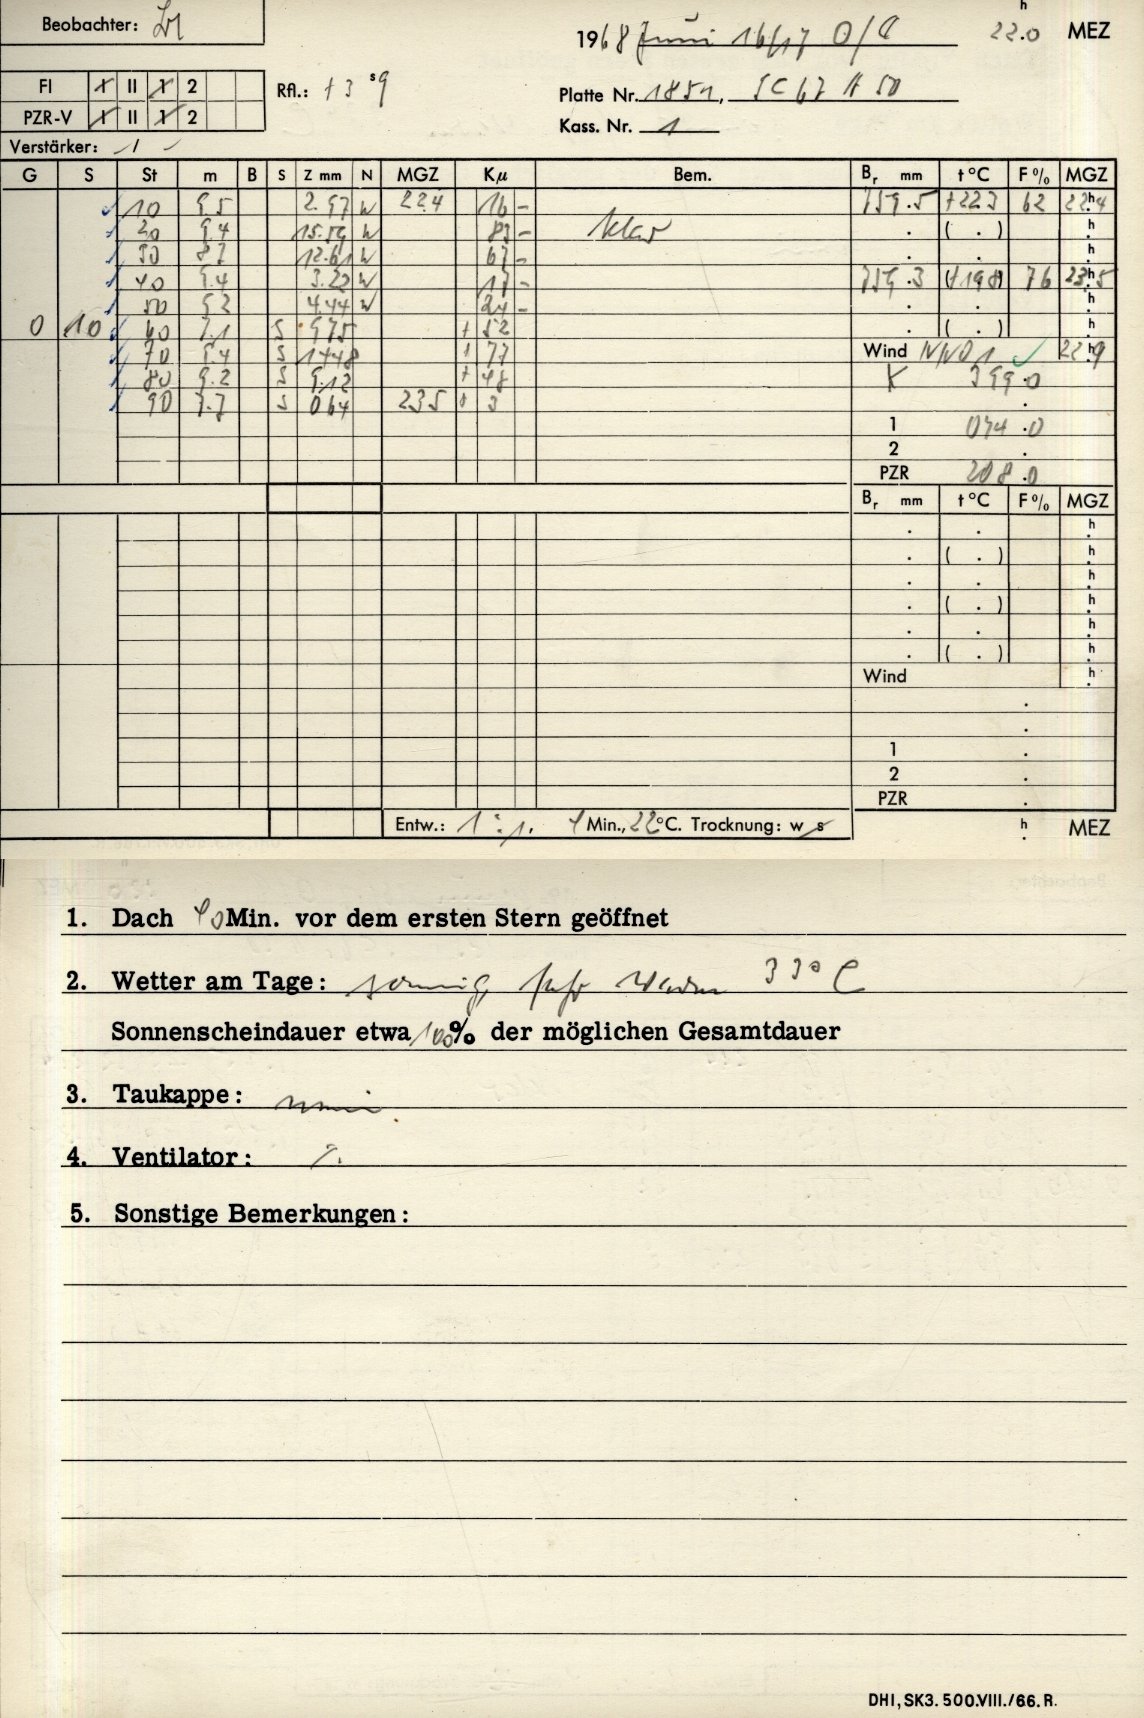 Beobachter:
1968 Juni 16/17 0/
22.0 h MEZ
FI I II 1 2
PZR-V I II 1 2
Rfl.: +3 s 9
Platte Nr. 1851, SC 67 H 50
Kass. Nr. 1
Verstärker: /
G S St m B S Z mm N MGZ Kμ Bem. Br mm t°C F% MGZ
10 9.5 2.97 W 22.4 16 - 759.5 +22.3 62 22.4 h
20 9.4 15.59 W 83 - klar . ( . ) h
30 8.7 12.61 W 67 - . . h
40 9.4 3.22 W 17 - 759.3 (+19.8) 76 23.5 h
50 9.2 4.44 W 24 - . . h
0 10 60 7.1 S 9.75 + 52 . ( . ) h
70 9.4 S 14.48 + 77 Wind NNO 1 22.9 h
80 9.2 S 9.12 + 48 K 399.0
90 7.7 S 0.64 23.5 + 3 .
1 074.0
2 .
PZR 208.0
Br mm t°C F% MGZ
. . h
. ( . ) h
. . h
. ( . ) h
. . h
. ( . ) h
Wind h
.
.
1 .
2 .
PZR .
Entw.: 1:1, 4 Min., 22°C. Trocknung: w s h MEZ
1. Dach 40 Min. vor dem ersten Stern geöffnet
2. Wetter am Tage: sonnig, sehr warm 33° C
Sonnenscheindauer etwa 100% der möglichen Gesamtdauer
3. Taukappe:
4. Ventilator:
5. Sonstige Bemerkungen:
DHI, SK3. 500.VIII./66. R.